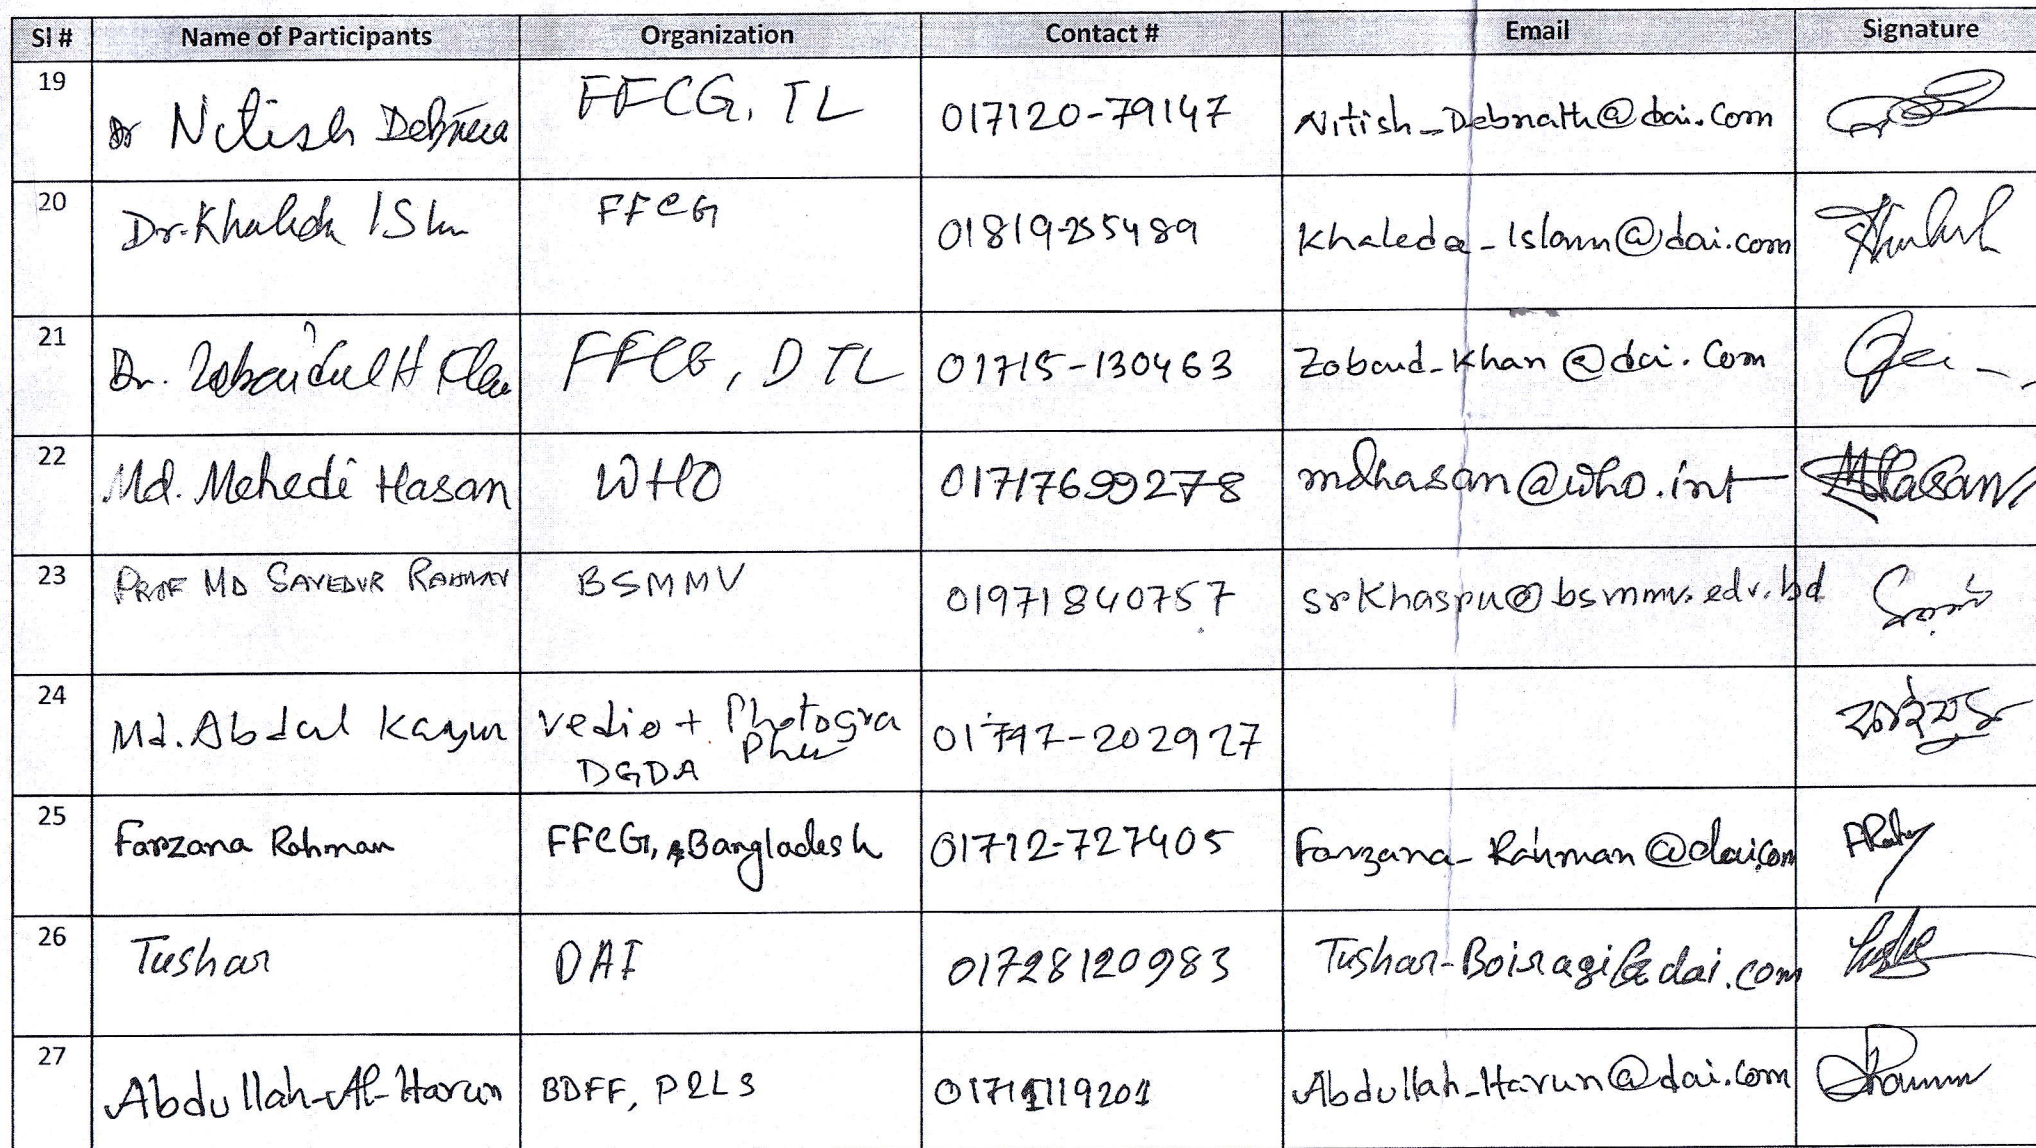 Sl # Name of Participants Organization Contact # Email Signature
19 Dr Nitish Debnath FFCG, TL 017120-79147 Nitish_Debnath@dai.com
20 Dr. Khaleda Islam FFCG 01819-255489 Khaleda_Islam@dai.com
21 Dr. Zobaidul H Khan FFCG, DTL 01715-130463 Zobaid_Khan@dai.com
22 Md. Mehedi Hasan WHO 01717699278 mdhasan@who.int MHasan
23 PROF MD SAYEDUR RAHMAN BSMMU 01971840757 srkhasru@bsmmu.edu.bd
24 Md. Abdul Kayum Vedio + Photogra
pher
DGDA 01747-202927 কাইয়ুম
25 Farzana Rahman FFCG, Bangladesh 01712-727405 Farzana_Rahman@dai.com
26 Tushar DAI 01728120983 Tushar_Boiragi@dai.com
27 Abdullah-Al-Harun BDFF, P2LS 01711119201 Abdullah_Harun@dai.com